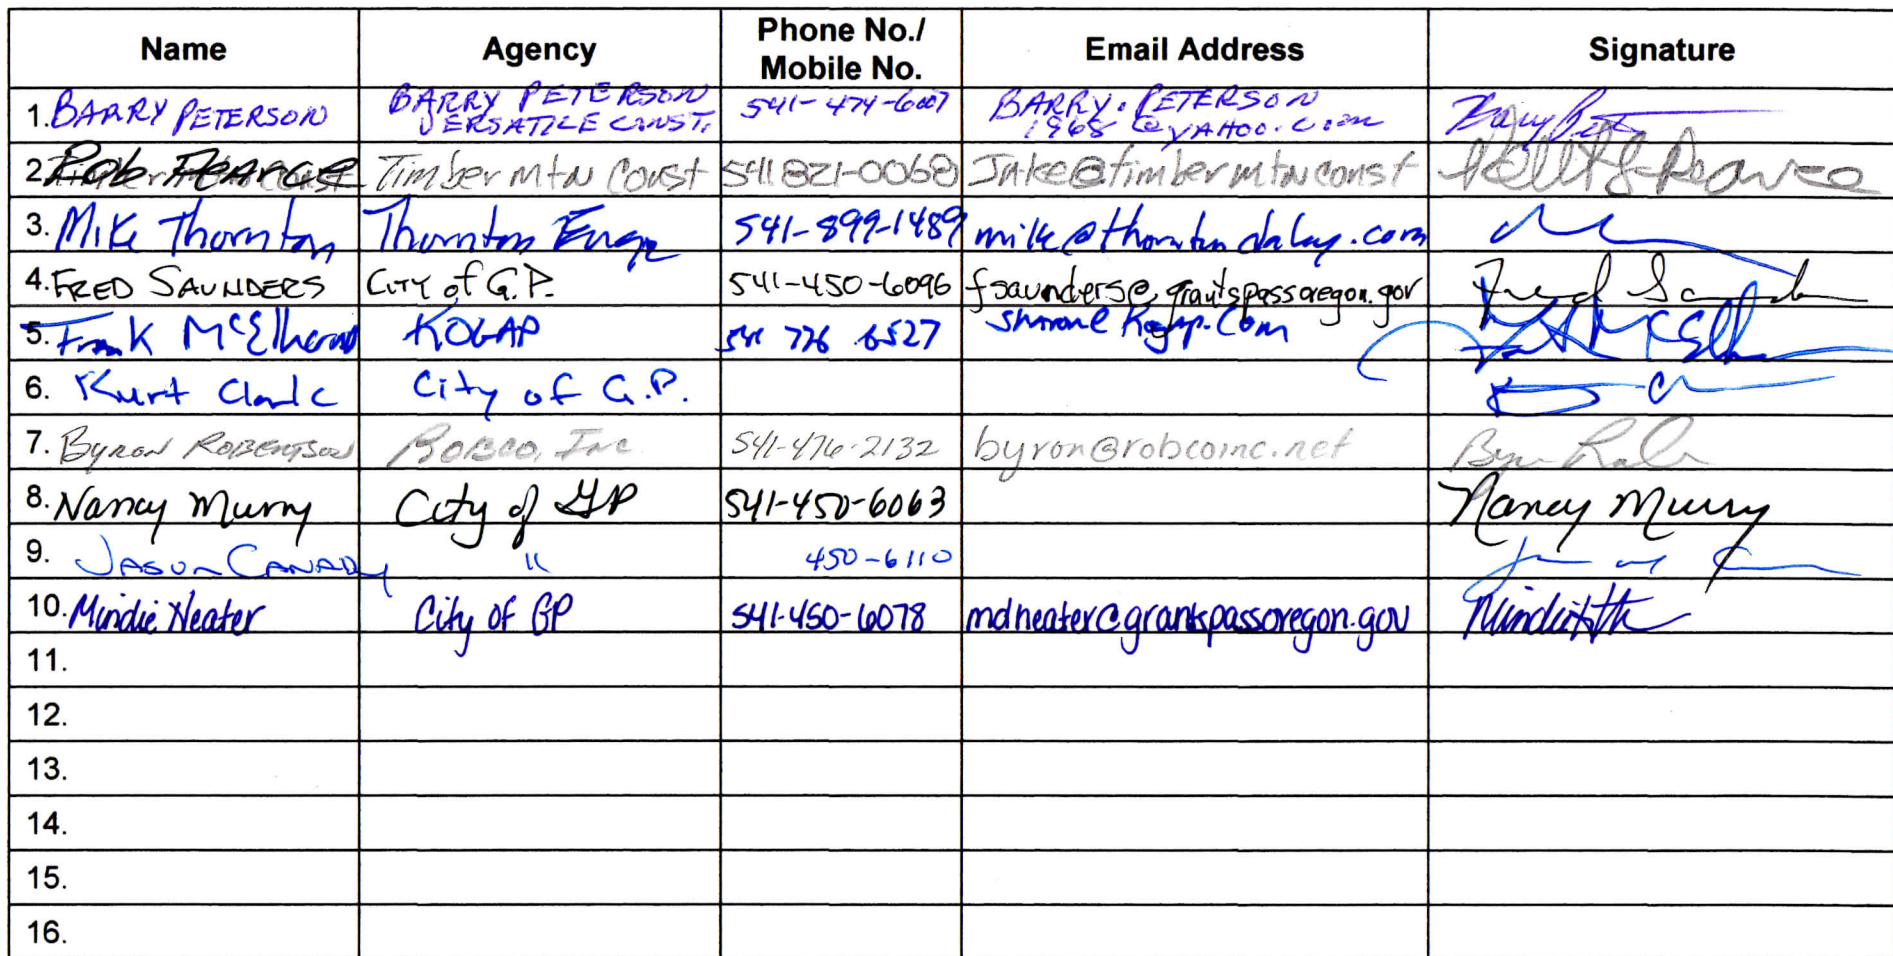 Name Agency Phone No./ Mobile No. Email Address Signature
1. BARRY PETERSON BARRY PETERSON VERSATILE CONST. 541-474-6007 BARRY.PETERSON 1968@YAHOO.COM
2. Rob PEARCE Timber mtn Const 541 821-0068 Jake@timbermtnconst
3. Mike Thornton Thornton Engr 541-899-1489
4. FRED SAUNDERS CITY of G.P. 541-450-6096 fsaunders@grantspassoregon.gov Fred
5. Frank KOGAP 541 776 6527
6. Kurt City of G.P.
7. BYRON ROBERTSON ROBCO, Inc 541-476-2132 byron@robcoinc.net
8. Nancy Murry City of GP 541-450-6063 Nancy Murry
9. JASON CANADY " 450-6110
10. Mindie Heater City of GP 541-450-6078 mdheater@grantspassoregon.gov
11.
12.
13.
14.
15.
16.